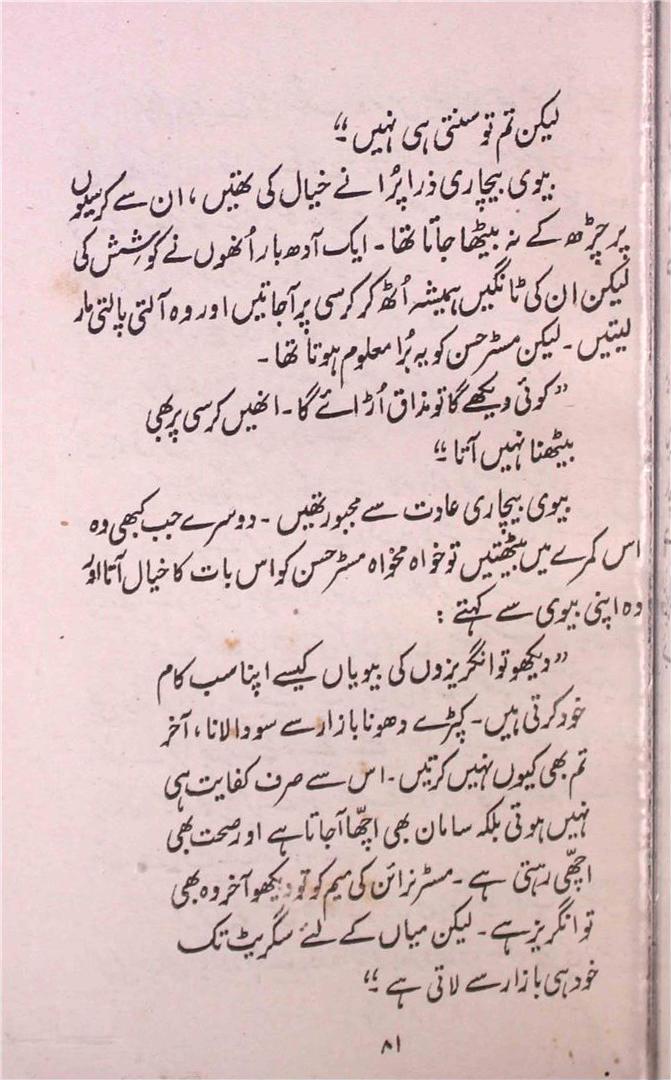 لیکن تم تو سنتی ہی نہیں ۔“
بیوی بیچاری ذرا پرُانے خیال کی تھیں ، ان سے کرسیوں
پر چڑھ کے نہ بیٹھا جاتا تھا ۔ ایک آدھ بار اُنھوں نے کوشِش کی
لیکن ان کی ٹانگیں ہمیشہ اُٹھ کر کرسی پر آجاتیں اور وہ آلتی پالتی مار
لیتیں ۔ لیکن مسٹر حسن کو یہ بُرا معلوم ہوتا تھا ۔
”کوئی دیکھے گا تو مذاق اُڑائے گا ۔ انھیں کرسی پر بھی
بیٹھنا نہیں آتا ۔“
بیوی بیچاری عادت سے مجبور تھیں ۔ دوسرے جب کبھی وہ
اس کمرے میں بیٹھتیں تو خواہ مخواہ مسٹر حسن کو اس بات کا خیال آتا اور
وہ اپنی بیوی سے کہتے :
”دیکھو تو انگریزوں کی بیویاں کیسے اپنا سب کام
خود کرتی ہیں ۔ کپڑے دھونا بازار سے سودا لانا ، آخر
تم بھی کیوں نہیں کرتیں ۔ اس سے صرف کفایت ہی
نہیں ہوتی بلکہ سامان بھی اچھّا آجاتا ہے اور صحت بھی
اچھّی رہتی ہے ۔ مسٹر نرائن کی میم کو تو دیکھو آخر وہ بھی
تو انگریز ہے ۔ لیکن میاں کے لئے سگریٹ تک
خود ہی بازار سے لاتی ہے ۔“
۸۱